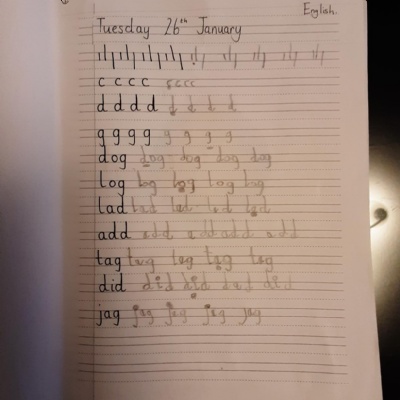 English.
Tuesday 26th January
c c c c c c c c
d d d d d d d d
g g g g g g g g
dog dog dog dog dog
log log log log log
lad lad lad lad lad
add add add add add
tag tag tag tag tag
did did did did did
jag jag jag jag jag